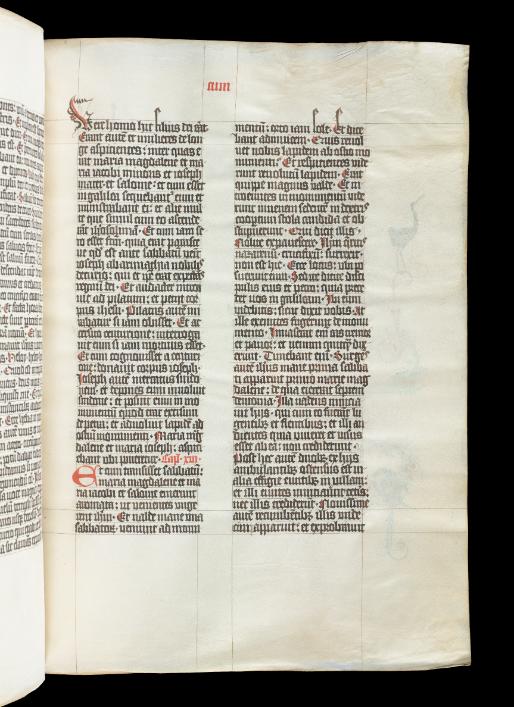 cum
Vere homo hic filius dei erat
Erant autē et mulieres de lon
ge aspicientes: inter quas e
rat maria magdalene et ma
ria iacobi minoris et ioseph
mater et salome: et cum esset
in galilea sequebantʳ eum et
ministrabant ei: et alie mul
te que simul cum eo ascende
rant iherosolimā. Et cum iam se
ro esset factū: quia erat parasce
ue qd est ante sabbatū venit
ioseph ab arimathia nobilis
decurio: qui et ip̄e erat expectās
regnū dei. Et audacter introi
uit ad pilatum: et petijt cor
pus ihesu. Pilatus autē mi
rabatur si iam obisset. Et ac
cersito centurione: interroga
uit eum si iam mortuus esset.
Et cum cognouisset a centuri
one: donauit corpus ioseph.
Ioseph autē mercatus sindo
nem: et deponens eum inuoluit
sindone: et posuit eum in mo
numento quod erat excisum
de petra: et aduoluit lapidē ad
ostiū monumenti. Maria mag
dalene et maria ioseph: aspici
ebant ubi poneretur. Cap. xvi.
Et cum transisset sabbatum:
maria magdalene et ma
ria iacobi et salome emerunt
aromata: ut venientes unge
rent ihm. Et valde mane una
sabbatoꝝ veniunt ad monu
mentū: orto iam sole. Et dice
bant adinuicem. Quis reuol
uet nobis lapidem ab ostio mo
numenti. Et respicientes vide
runt reuolutū lapidem. Erat
quippe magnus valde. Et in
troeuntes in monumentū vide
runt iuuenem sedentē in dextris
coopertum stola candida et ob
stupuerunt. Qui dicit illis.
Nolite expauescere. Ihm queritis
nazarenū: crucifixū: surrexit:
non est hic. Ecce locus: ubi po
suerunt eum. Sed ite dicite disci
pulis eius et petro: quia prece
det vos in galileam. Ibi eum
videbitis: sicut dixit vobis. At
ille exeuntes fugerunt de monu
mento. Inuaserat eni eas tremor
et pauor: et nemini quicq̄ dix
erunt. Timebant eni. Surgēs
autē ihesus mane prima sabba
ti apparuit primo marie mag
dalene: de qua eiecerat septem
demonia. Illa vadens nuncia
uit hijs: qui cum eo fuerant lu
gentibꝫ et flentibus: et illi au
dientes quia viueret et visus
esset ab ea: non crediderunt.
Post hec autē duobꝫ ex hijs
ambulantibꝫ ostensus est in
alia effigie euntibꝫ in villam:
et illi euntes nunciauerūt ceteris:
nec illis crediderunt. Nouissime
autē recumbentibꝫ illis unde
cim apparuit: et exprobrauit